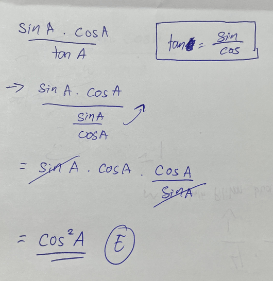 sin A . cos A / tan A
tan = sin / cos
→ sin A . cos A / (sin A / cos A)
= sin A . cos A . cos A / sin A
= cos²A (E)